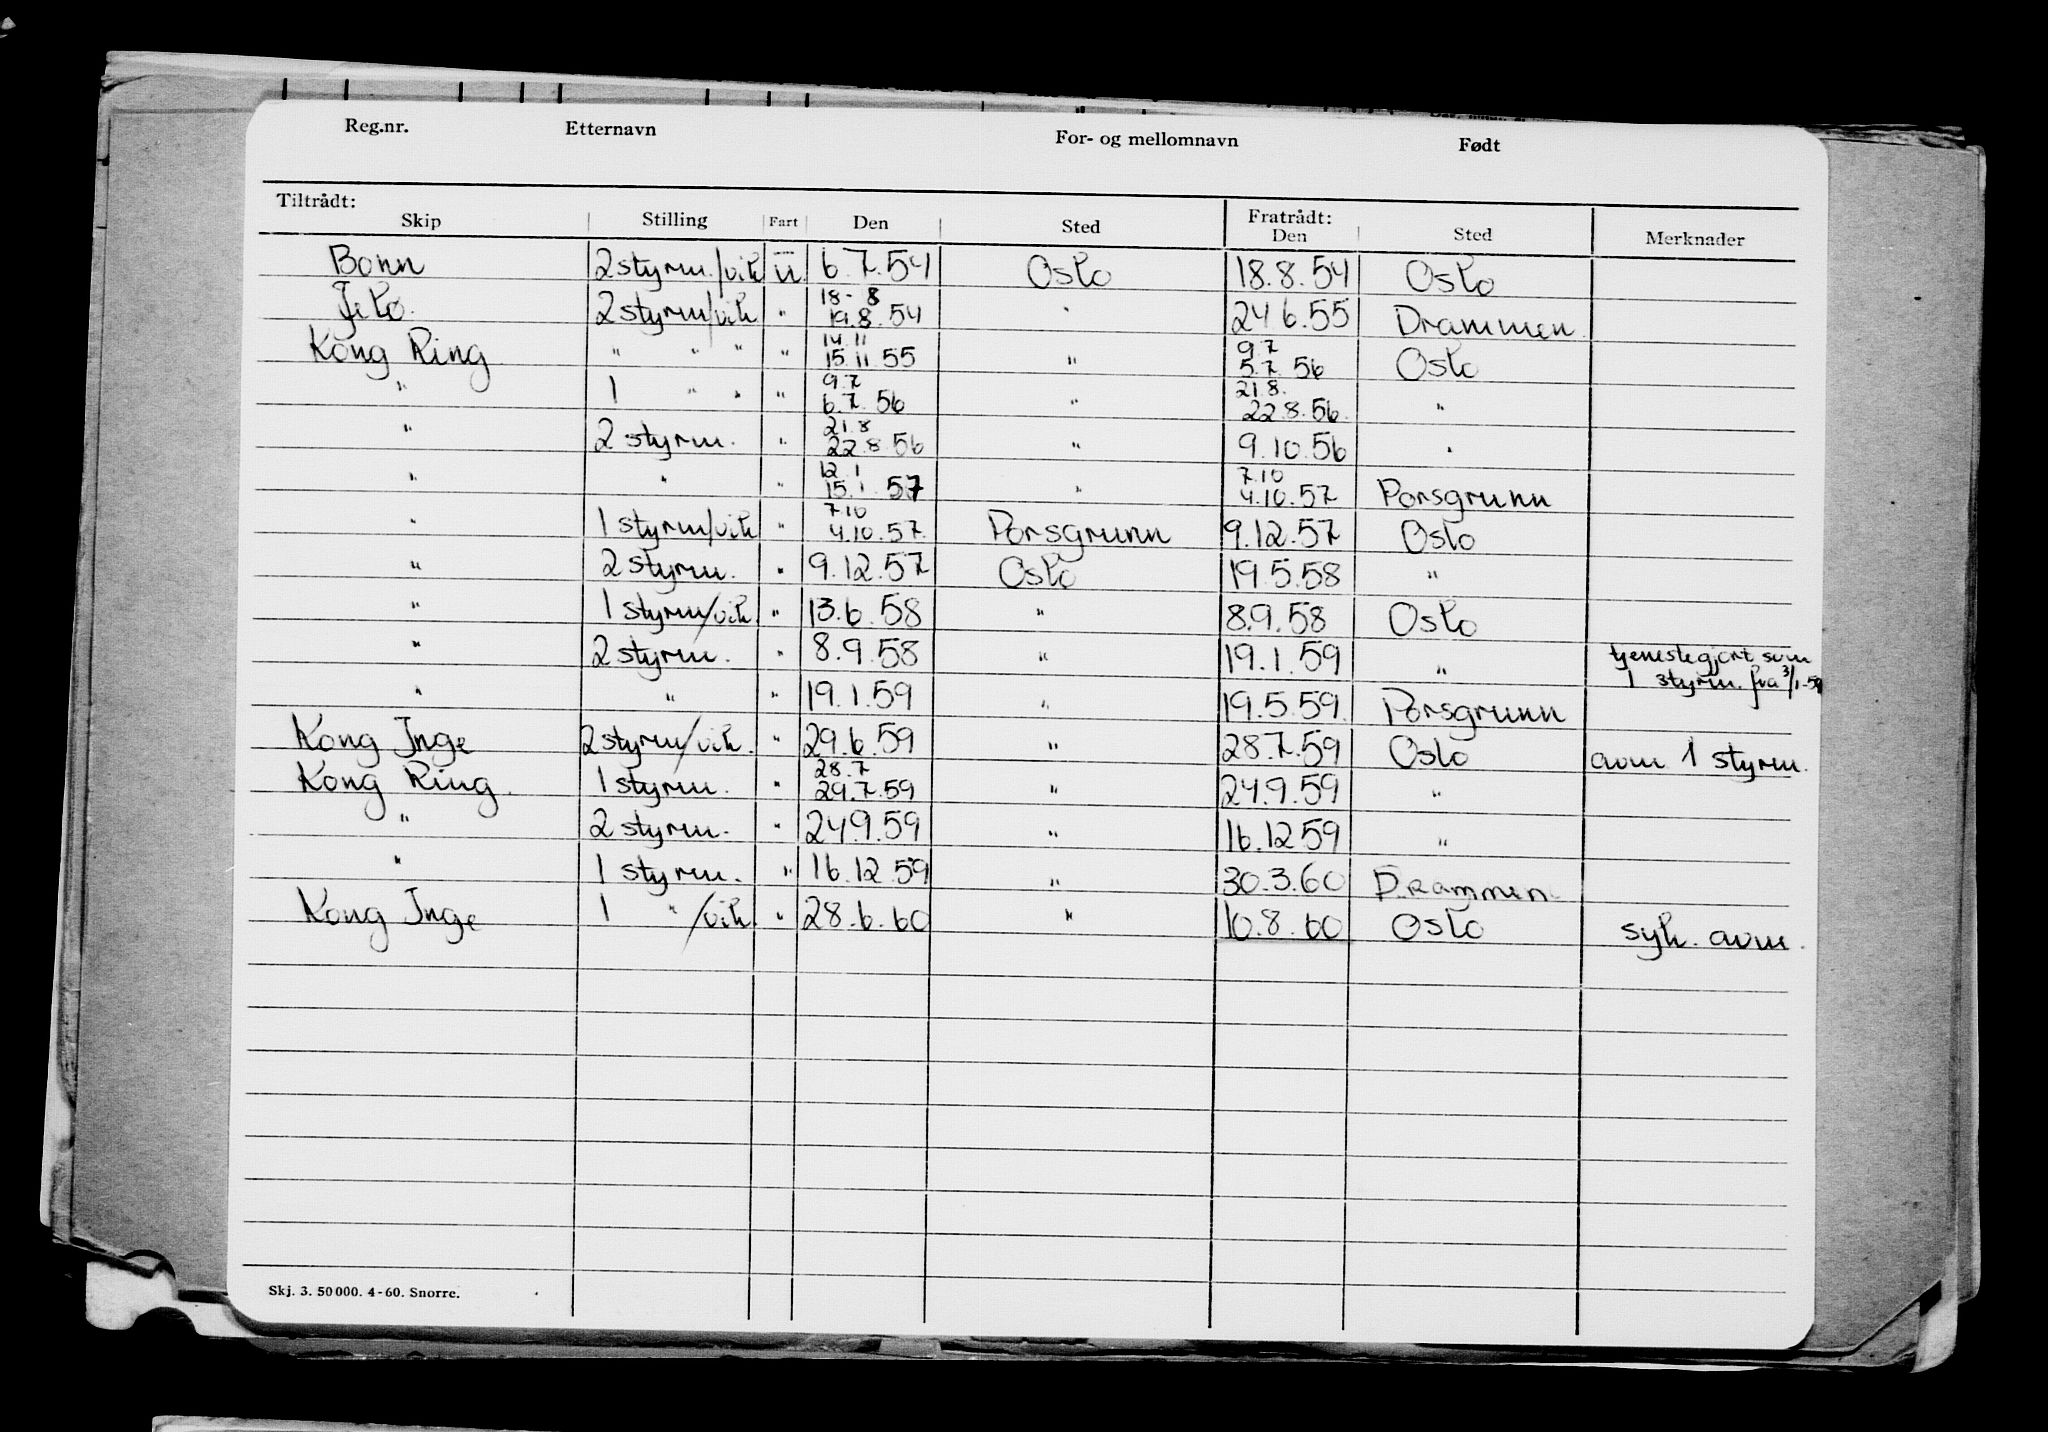 Reg.nr. Etternavn For- og mellomnavn Født
Tiltrådt: Fratrådt:
Skip Stilling Fart Den Sted Den Sted Merknader
Bonn 2 styrm./vik u 6.7.54 Oslo 18.8.54 Oslo
Jelø. 2 styrm/vik " 18-8 19.8.54 " 24 6.55 Drammen
Kong Ring " " " " 14.11 15.11.55 " 9.7 5.7.56 Oslo
" 1 " " " 9.7 6.7.56 " 21.8. 22.8.56. "
" 2 styrm. " 21.8 22.8.56 " 9.10.56 "
" " " 12.1 15.1.57 " 7.10 4.10.57 Porsgrunn
" 1 styrm/vik " 7.10 4.10.57. Porsgrunn 9.12.57 Oslo
" 2 styrm. " 9.12.57 Oslo 19.5.58 "
" 1 styrm/vik. " 13.6.58 " 8.9.58 Oslo
" 2 styrm. " 8.9.58 " 19.1.59 " tjenestegjort som
1 styrm. fra 3/1-59
" " " 19.1.59 " 19.5.59. Porsgrunn
Kong Inge 2 styrm/vik. " 29.6.59 " 28.7.59 Oslo avm 1 styrm.
Kong Ring. 1 styrm. " 28.7 29.7.59 " 24.9.59 "
" 2 styrm. " 24.9.59 " 16.12.59 "
" 1 styrm. " 16.12.59 " 30.3.60 Drammen.
Kong Inge 1 " /vik. " 28.6.60 " 10.8.60 Oslo syk. avm.
Skj. 3. 50 000. 4-60. Snorre.